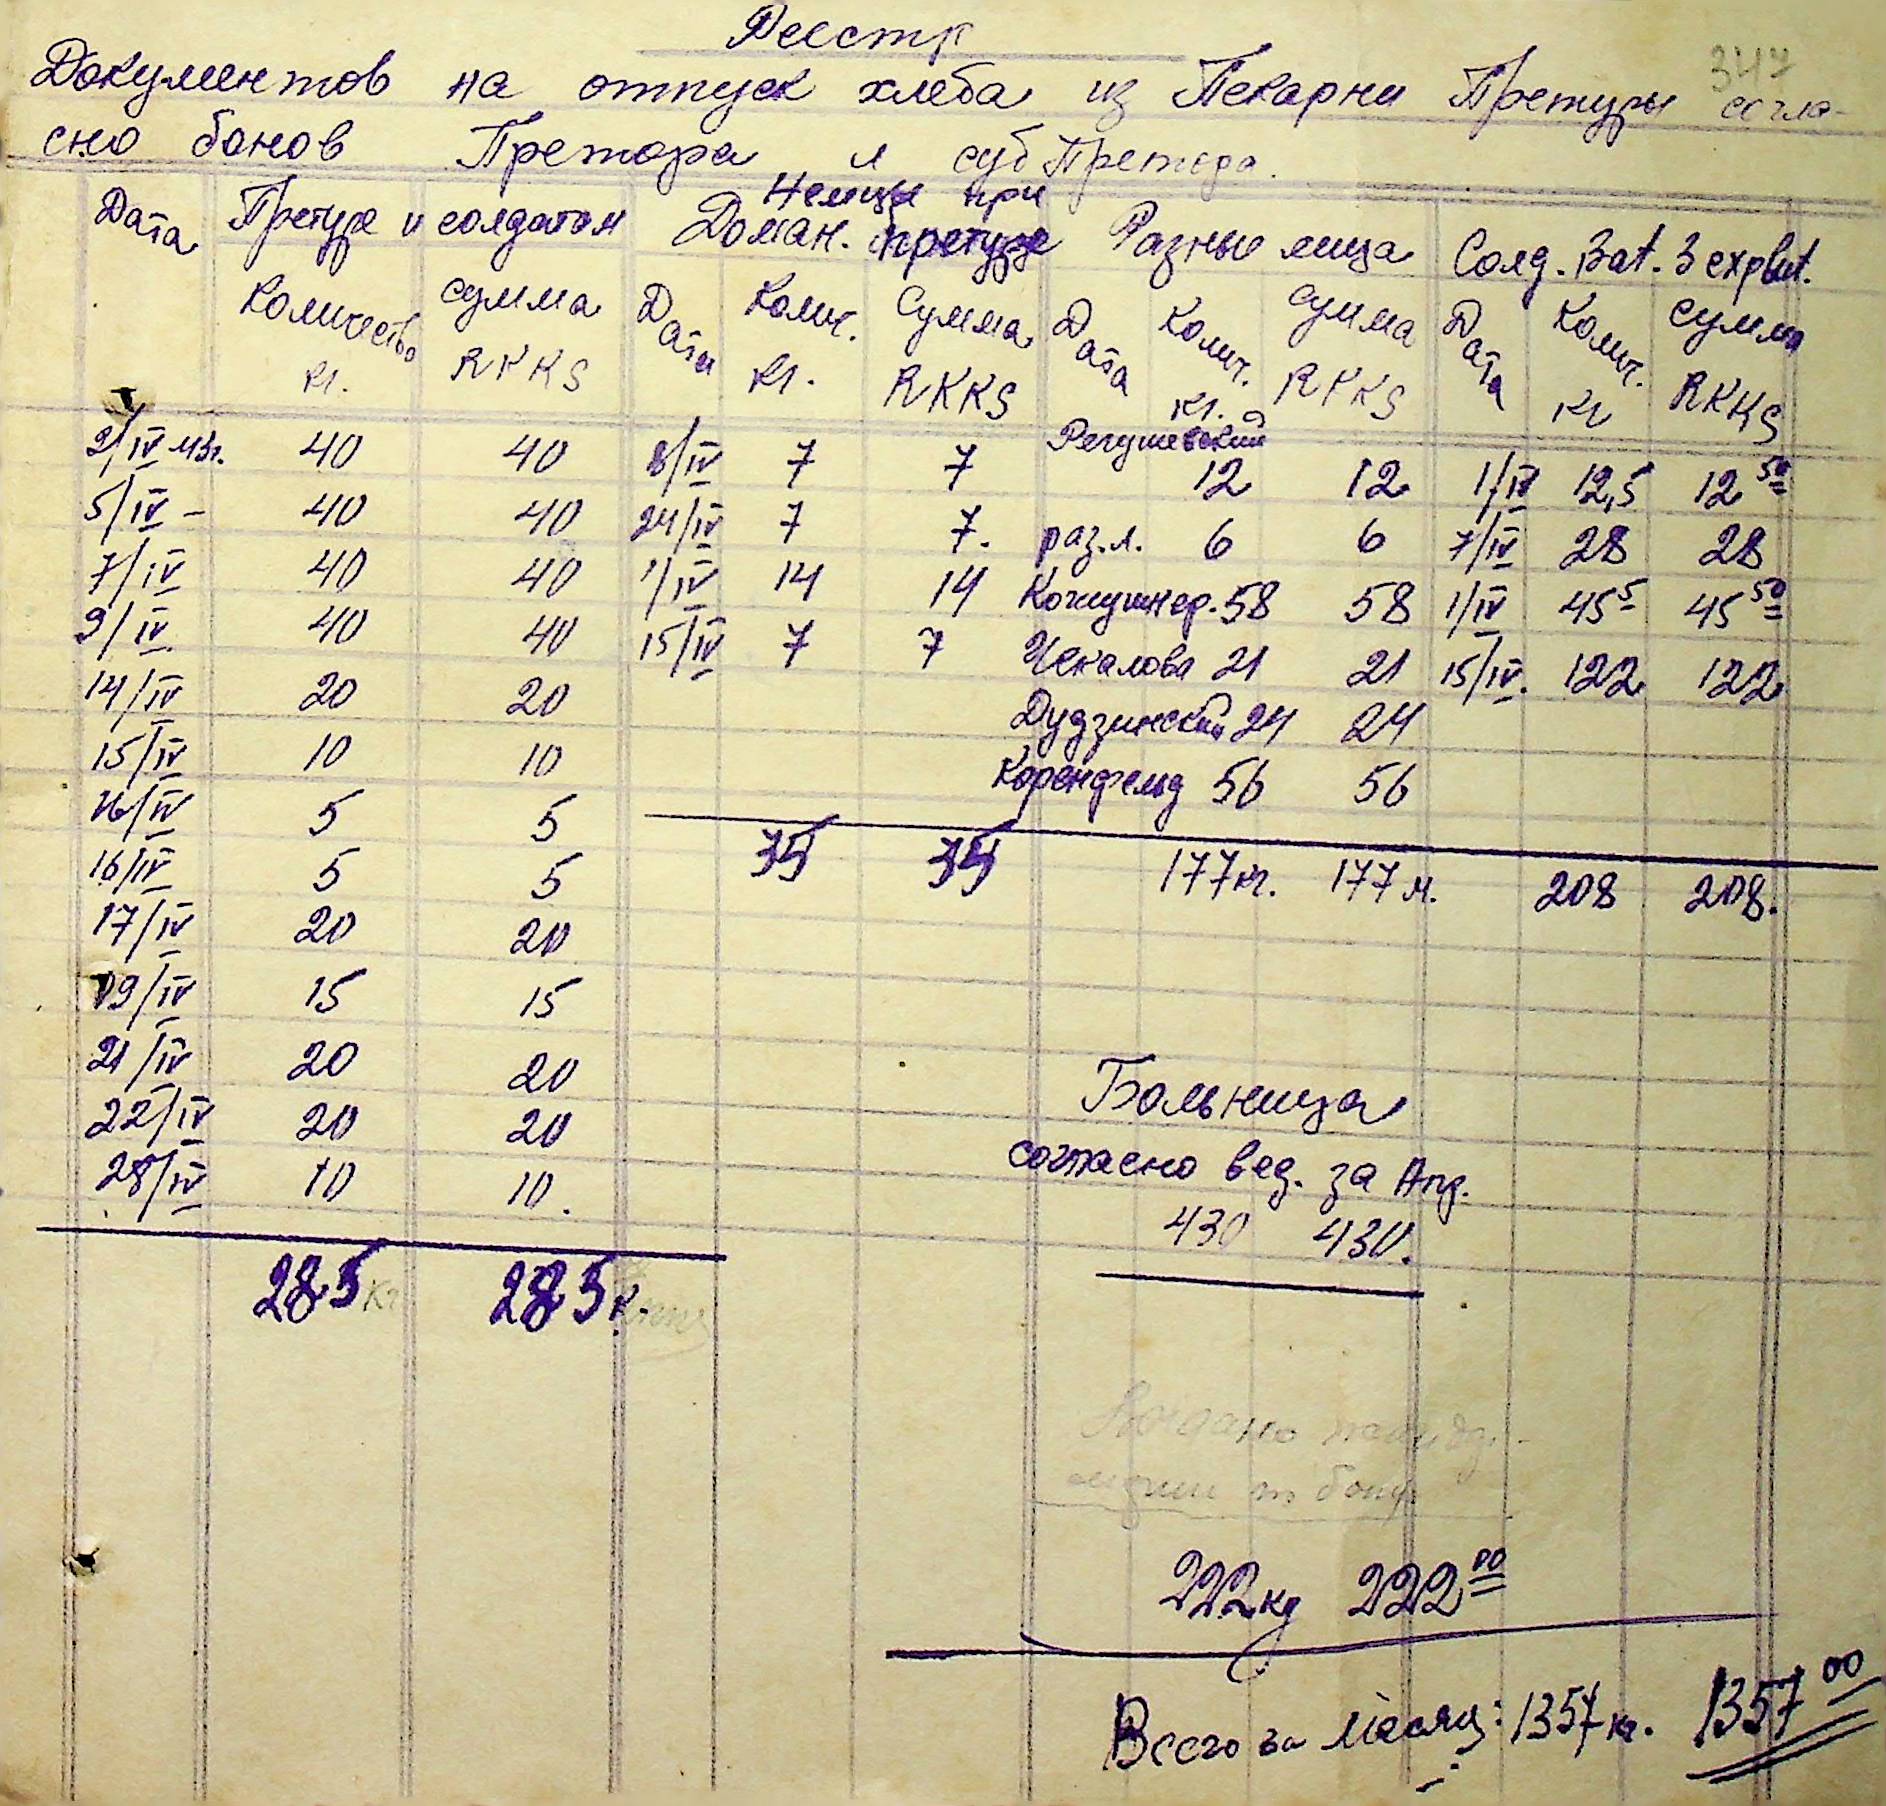 Реестр
347
Документов на отпуск хлеба из Пекарни Претуры согла-
сно бонов Претора и субПретора.
Дата Претуре и солдатам Доман. Немцы при претуре Разные лица Солд. Bat. 3 exploat.
Количество кг. сумма RKKS Дата Колич. кг. Сумма RKKS Дата Колич. кг. сумма RKKS Дата Колич. кг сумма RKKS
2/IV 43г. 40 40 8/IV 7 7 12 12 1/IV 12,5 12 50
5/IV - 40 40 24/IV 7 7. раз.л. 6 6 7/IV 28 28
7/IV 40 40 1/IV 14 14 Кожушнер. 58 58 1/IV 45 5 45 50
9/IV 40 40 15/IV 7 7 Чекалова 21 21 15/IV. 122 122
14/IV 20 20 Дудзинский 24 24
15/IV 10 10 Коренфельд 56 56
16/IV 5 5
16/IV 5 5 35 35 177кг. 177 м. 208 208.
17/IV 20 20
19/IV 15 15
21/IV 20 20
22/IV 20 20
28/IV 10 10.
285 кг 285
Больница
согласно вед. за Апр.
430 430.
222 кг 222 00
Всего за месяц: 1357 кг. 1357 00